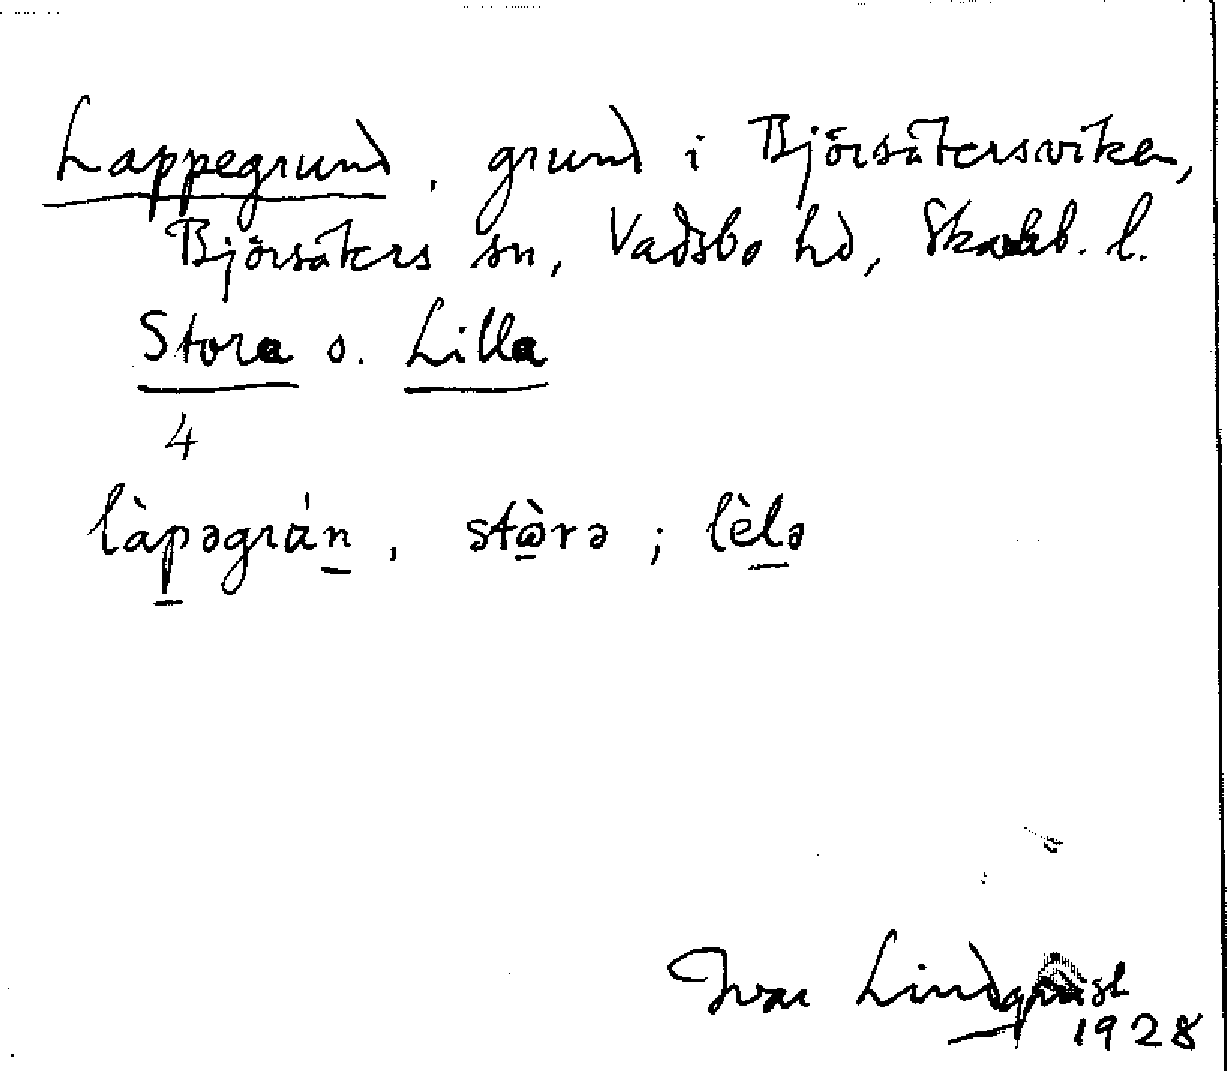 Lappegrund, grund i Björsätersviken,
Björsäters sn, Vadsbo hd, Skarab. l.
Stora o. Lilla
4
làpəgrán, stòrə; lèlə
Ivar Lindquist
1928